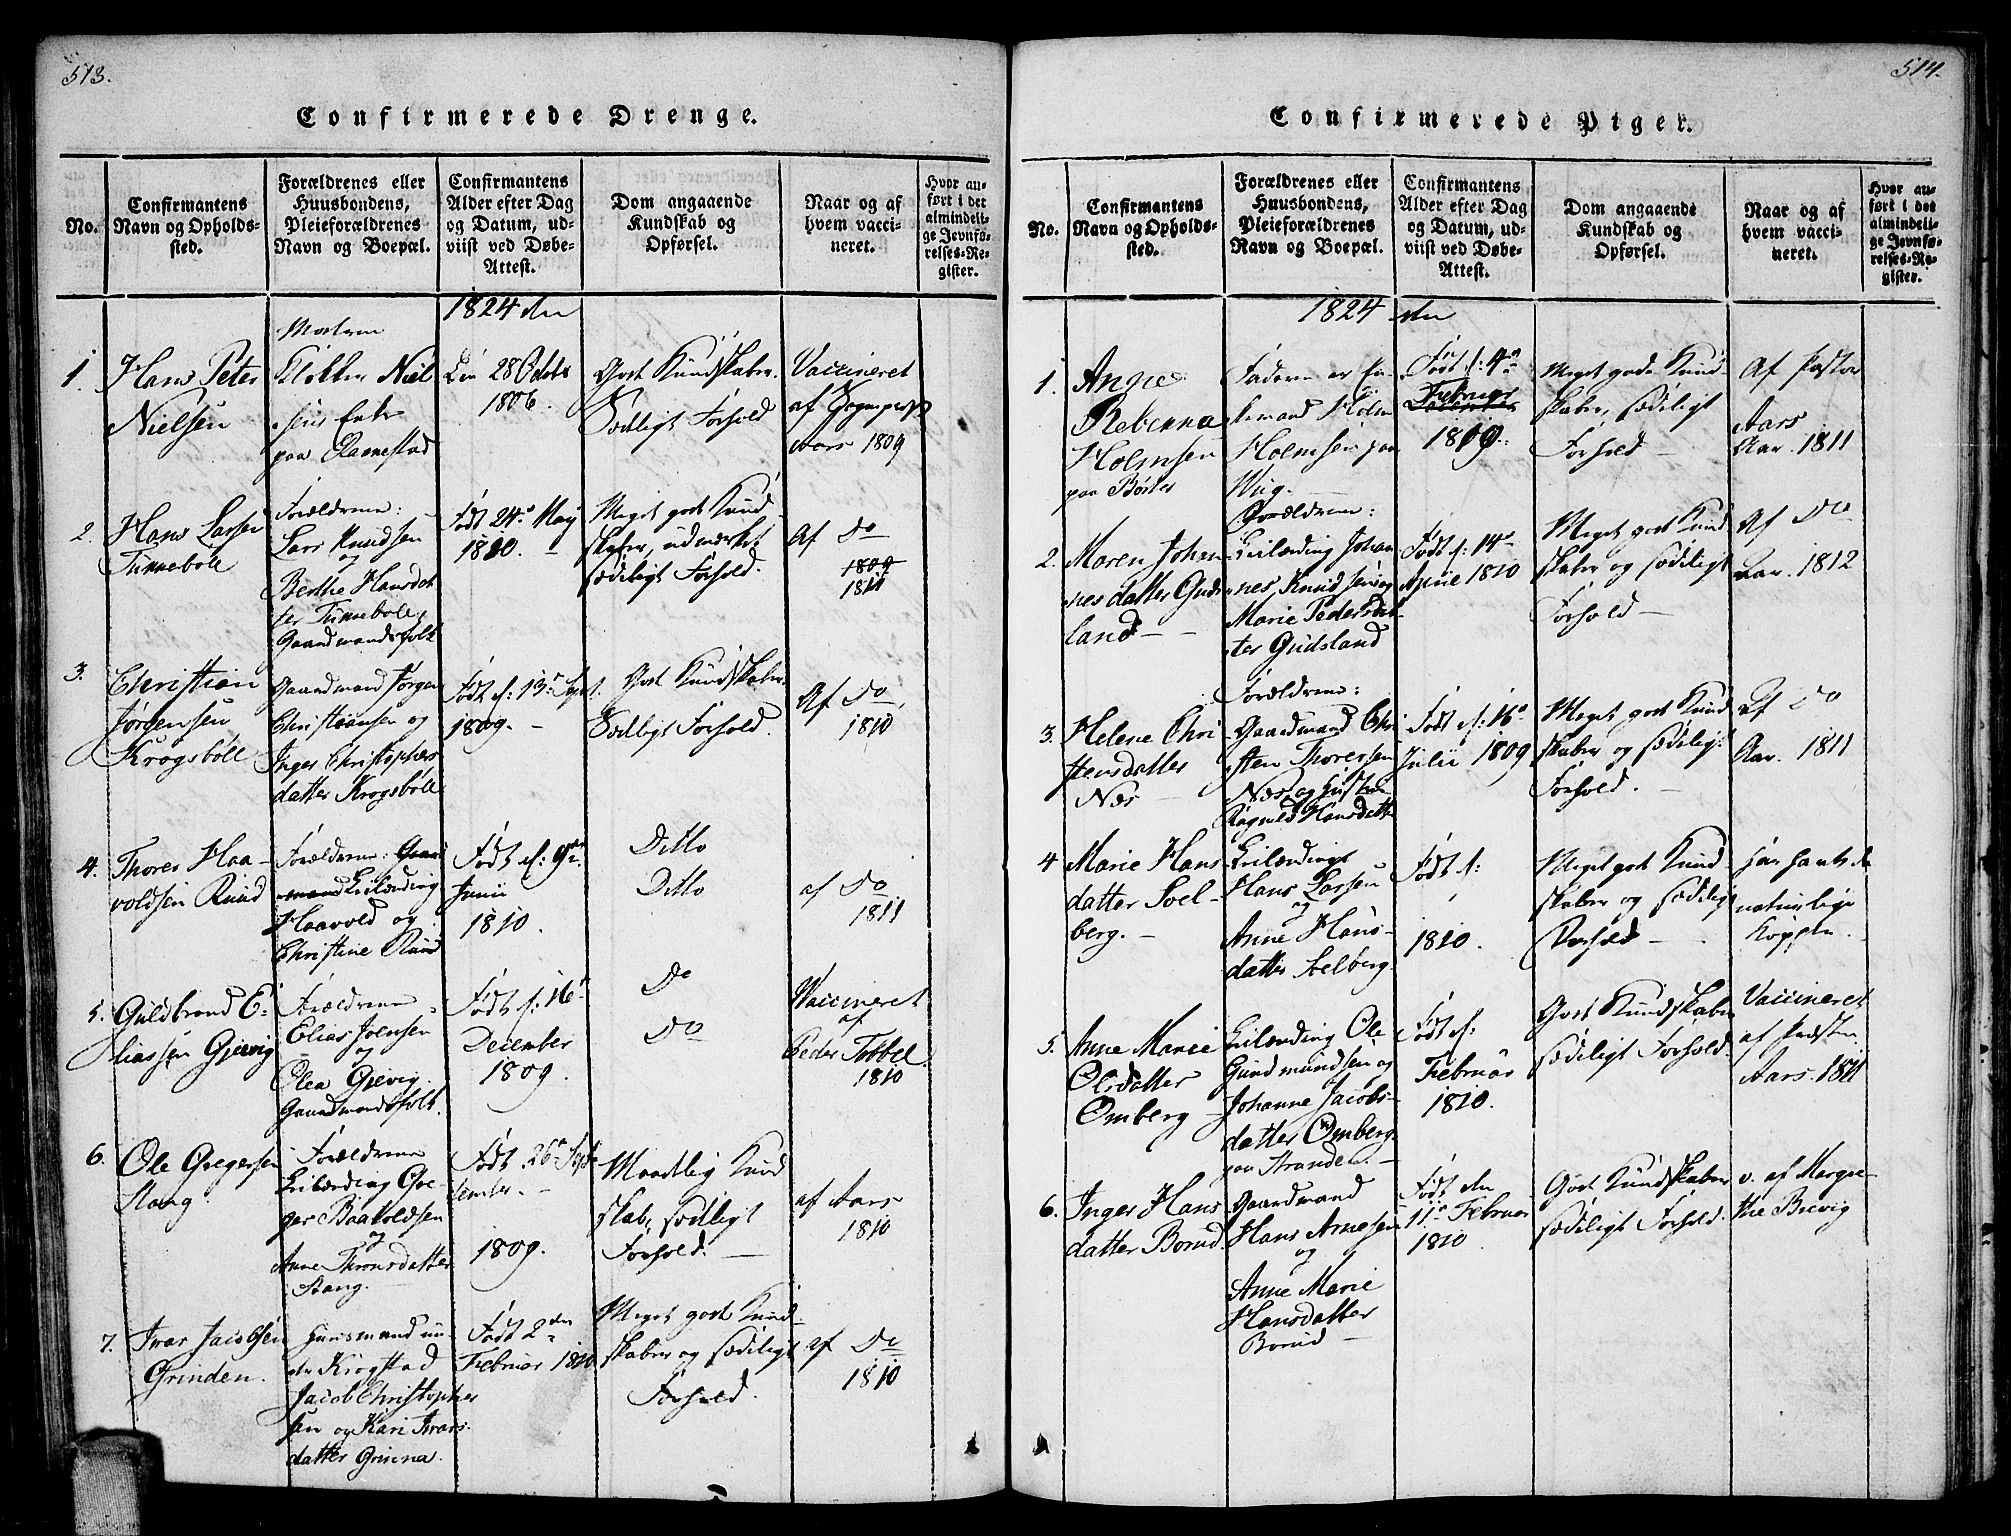 513.
Confirmerede Drenge.
No.
Confirmantens
Navn og Opholds-
sted.
Forældrenes eller
Huusbondens,
Pleieforældrenes
Navn og Boepæl.
Confirmantens
Alder efter Dag
og Datum, ud-
viist ved Døbe-
Attest.
Dom angaaende
Kundskab og
Opførsel.
Naar og af
hvem vacci-
neret.
Hvor an-
ført i det
almindeli-
ge Jevnfø-
relses-Re-
gister.
1824 den
1.
Hans Peter
Nielsen
Moderen
Klokker Niel
sens Enke
paa
Den 28 Octobr
1806.
God Kundskaber.
Sædligt Forhold
Vaccineret
af Sogneprest
Aars 1809
2.
Hans Larsen
Tunnebøle
Forældrene:
Lars Knudsen
og
Berthe Hansdat
ter Tunnebøle
Gaardmandsfolk
Født 24. May
1810.
Meget god Kund-
skaber, udmærket
sædeligt Forhold.
Af Do
1809
1811
3.
Christian
Jørgensen
Krogsbøll
Gaardmand Jørgen
Christiansen og
Inger Christophers
datter Krogsbøll
Født d: 13 Sept.
1809.
God Kundskaber.
Sædligt Forhold.
Af Do
1810
4.
Thorer Haa-
voldsen Ruud
Forældrene: Gaard
mand Leilænding
Haavold og
Christine Ruud
Født d: 9de
Junii
1810.
Ditto
Ditto
af Do
1811
5.
Guldbrand E-
liassen Gjevig
Forældrene
Elias Joensen
og
Olea Gjevig.
Gaardmandsfolk.
Født d: 16
December
1809.
Do
Do
Vaccineret
af
Peder Tobbel
1810
6.
Ole Gregersen
Stang
Forældrene
Leilænding Gre-
ger Baaholdsen
og
Anne Thronsdatter
Stang.
Født 26 Sep-
tember.
1809.
Maadelig Kund
skab, sædligt
Forhold.
af Aars
1810
7.
Ivar Jacobsen
Grinden.
Huusmand un-
der Krogstad
Jacob Christopher
sen og Kari Ivars
datter Grinna.
Født 2den
Februar 1810
Meget god Kund-
skaber og sædeligt
Forhold.
af Do
1810
514.
Confirmerede Piger.
No.
Confirmantens
Navn og Opholds-
sted.
Forældrenes eller
Huusbondens,
Pleieforældrenes
Navn og Boepæl.
Confirmantens
Alder efter Dag
og Datum, ud-
viist ved Døbe-
Attest.
Dom angaaende
Kundskab og
Opførsel.
Naar og af
hvem vacci-
neret.
Hvor an-
ført i det
almindeli-
ge Jevnfø-
relses-Re-
gister.
1824 den
1.
Anne
Rebecca
Holmsen
paa Børter
Faderen er En-
kemand Holm
Holmsen paa
Wug.
Født d: 4
Februar
1809.
Meget gode Kund-
skaber, sædeligt
Forhold
Af Pastor
Aars
Aar. 1811
2.
Maren Johan
nesdatter Guds
land
Forældrene:
Leilænding Johan
nes Knudsen og
Marie Pedersdat
ter Gudsland
Født d: 14
April 1810
Meget god Kund
skaber og sædeligt
Forhold
Af Do
Aar. 1812
3.
Helene Chri
stensdatter
Næs
Forældrene:
Gaardmand Chri
sten Thoressen
Næs og Hustru
Ragnild Hansdatt
Født d: 16
Julii 1809
Meget god Kund
skaber og sædeligt
Forhold.
Af Do
Aar. 1811
4
Marie Hans
datter Soel-
berg.
Leilænding
Hans Larsen
og
Anne Hans-
datter Soelberg.
Født d:
1810.
Meget god Kund
skaber og sædeligt
Forhold
har havt de
naturlige
Kopper.
5.
Anne Marie
Olsdatter
Omberg
Leilænding Ole
Gundmundsen og
Johanne Jacobs-
datter Omberg
paa Stranden.
Født d:
Februar
1810.
God Kundskaber
sædeligt Forhold.
Vaccineret
af Præsten
Aars. 1811
6.
Inger Hans
datter Borud.
Gaardmand
Hans Arnesen
og
Anne Marie
Hansdatter
Borud
Født den
11 Februar
1810
God Kundskaber
sædeligt Forhold.
v. af Margre-
the Brevig